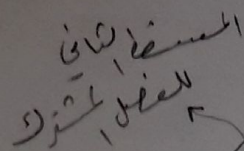 المسقط الثاني
للفصل المشترك